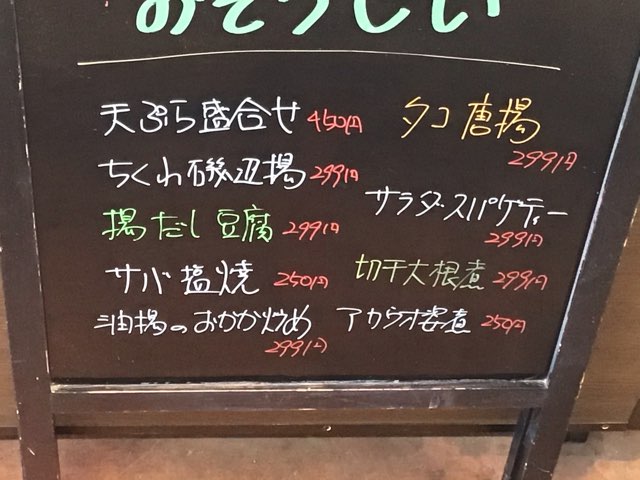 おそうじい
天ぷら盛合せ 450円
ちくわ磯辺揚 299円
揚だし豆腐 299円
サバ塩焼 250円
油揚のおかか炒め
299円
タコ唐揚
299円
サラダスパゲティー
299円
切干大根煮 299円
アカウオ姿煮 250円